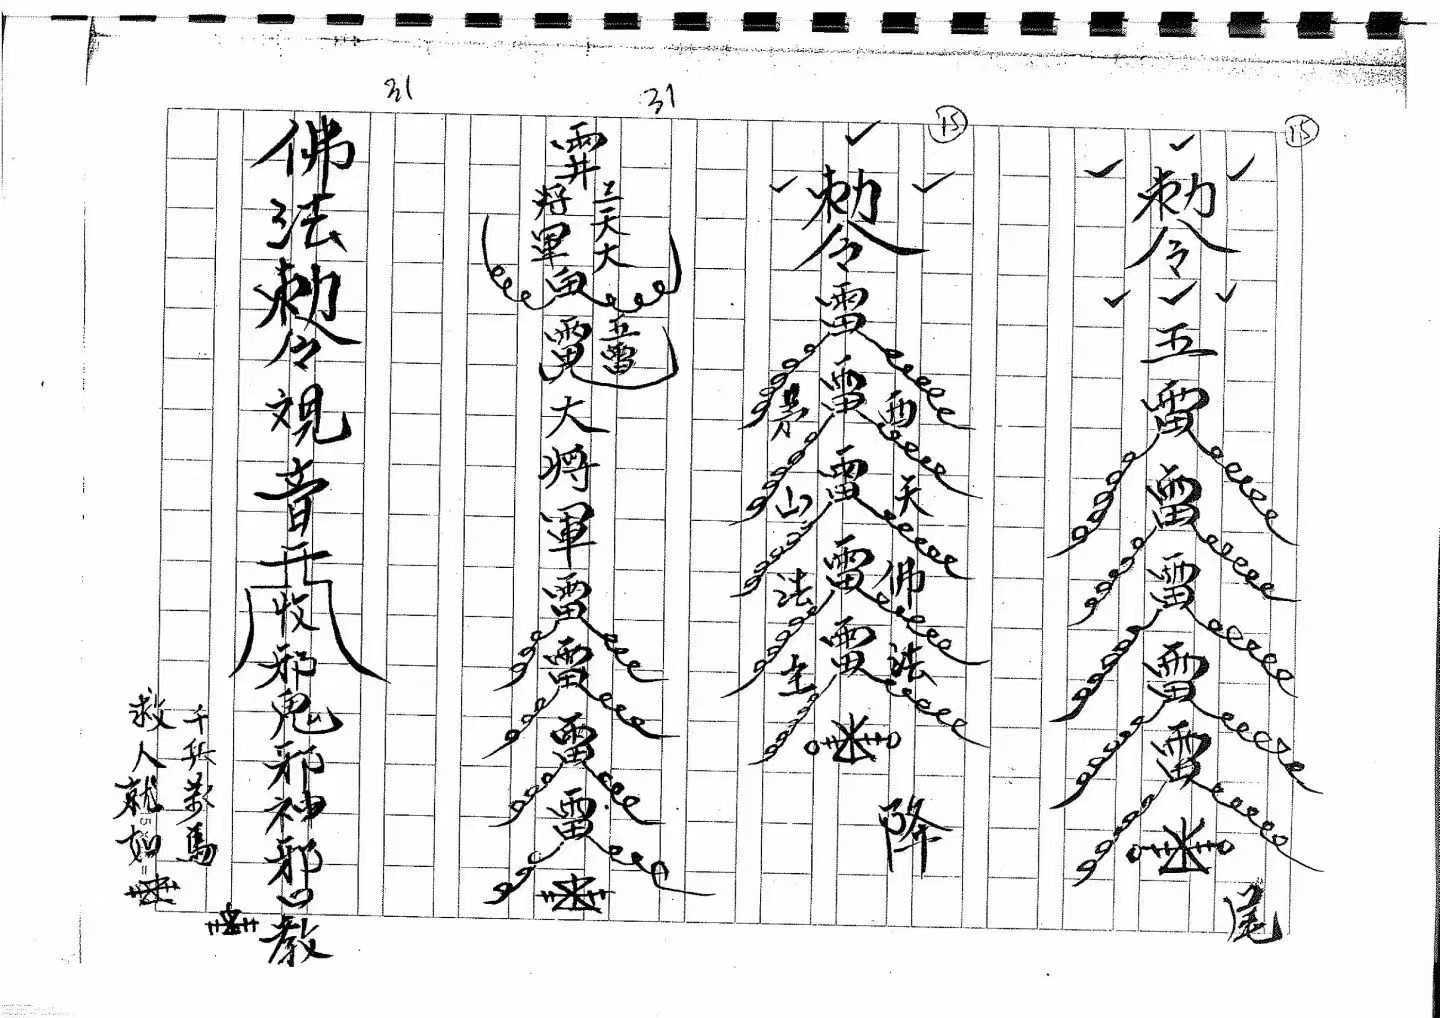 15
勅令
五
雷
雷
雷
雷
雷
尾
15
勅令
雷
雷
雷
雷
雷
西天佛法
山法主
降
31
三天大
將軍
五雷
大將軍
雷
雷
雷
雷
31
佛法勅令
觀音
收邪鬼邪神邪教
千兵萬馬
救人就如